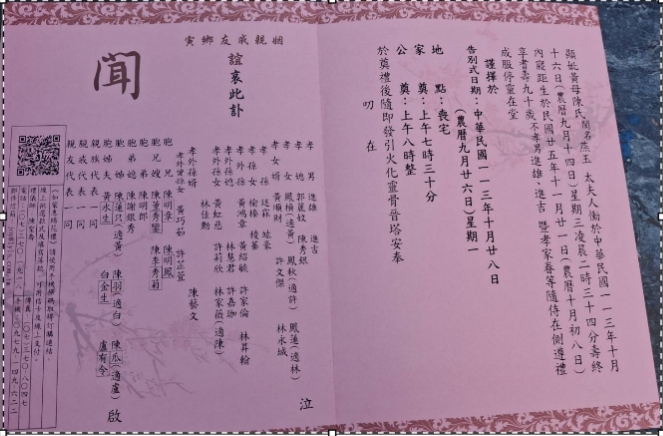 顯妣黃母陳氏閨名燕玉 太夫人慟於中華民國一一三年十月
十六日(農曆九月十四日)星期三凌晨二時三十四分壽終
內寢距生於民國廿五年十一月廿一日(農曆十月初八日)
享耆壽九十歲不孝男進雄、進吉 暨孝家眷等隨侍在側遵禮
成服停靈在堂
謹擇於
告別式日期:中華民國一一三年十月廿八日
(農曆九月廿六日)星期一
地 點:喪宅
家 奠:上午七時三十分
公 奠:上午八時整
於奠禮後隨即發引火化靈骨晉塔安奉
叨 在
姻親戚友鄉寅
誼哀此訃
聞
孝男 進雄 進吉
孝媳 郭淑敏 陳秀銀
孝女 鳳楨(適黃) 鳳秋(適許) 鳳蓮(適林)
孝女婿 黃順財 許文傑 林永城
孝孫
孝孫女
孝外孫 黃鴻章 黃紹毓 許家倫 林昇翰
孝外孫媳 林慧君 許嘉珈
孝外孫女 黃虹慈 許莉欣 林家薇(適陳)
孝外孫婿 林佳勳 陳藝文
孝外曾孫女 黃巧茹 許芷萱
胞兄 陳明章 陳明鳳
胞兄嫂 陳董秀鑾 陳李秀莉
胞弟 陳明郎
胞弟媳 陳謝銀秀
胞姊 陳蓮只(適黃) 陳羽(適白) 陳瓜(適盧)
胞姊夫 黃水生 白金生 盧有令
親族代表一同
親戚代表一同
親友代表一同
泣
啟